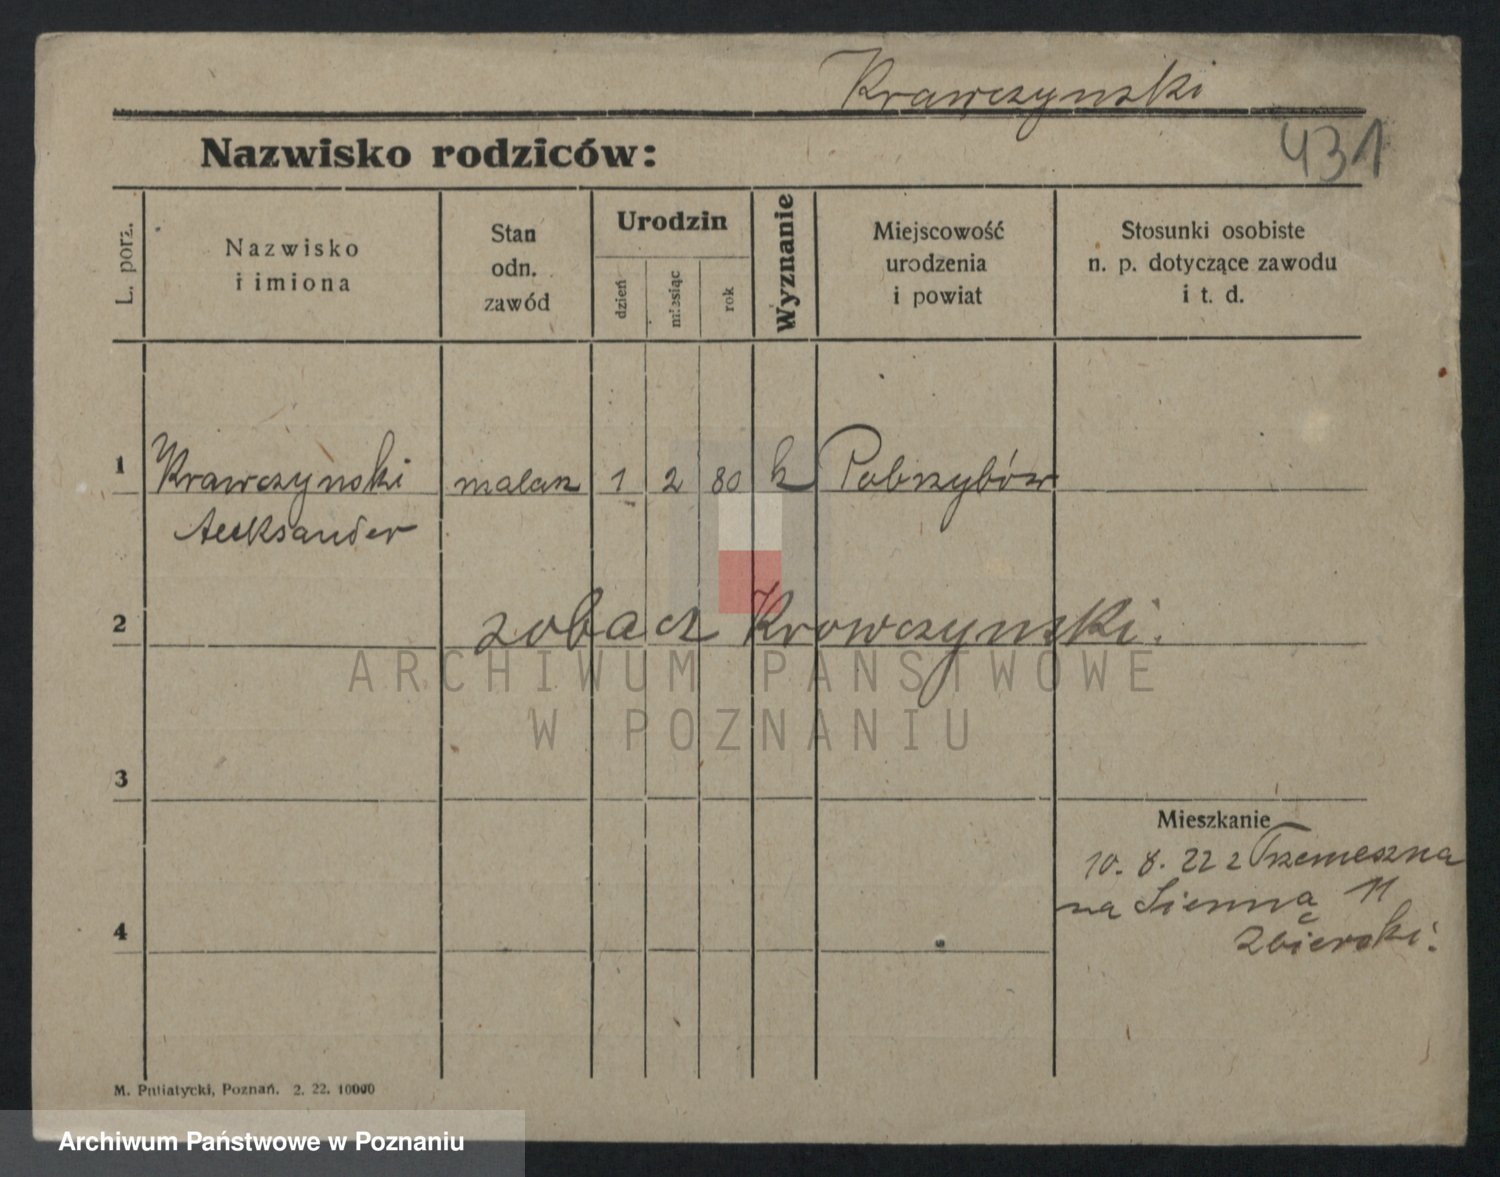 Krawczynski
431
Nazwisko rodziców:
L. porz.
Nazwisko
i imiona
Stan
odn.
zawód
Urodzin
dzień
miesiąc
rok
Wyznanie
Miejscowość
urodzenia
i powiat
Stosunki osobiste
n. p. dotyczące zawodu
i t. d.
1 Krawczynski malarz 1 2 80 k Pobrzybów
Aleksander
2 zobacz Krowczynski.
ARCHIWUM PAŃSTWOWE
W POZNANIU
3
Mieszkanie
10. 8. 22 z Trzemeszna
na Sienną 11
c
Zbierski.
4
M. Putiatycki, Poznań. 2. 22. 10000
Archiwum Państwowe w Poznaniu